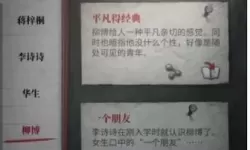 蒋梓桐
李诗诗
华生
柳博
平凡得经典
柳博给人一种平凡亲切的感觉，同
时也暗指他没什么个性，好像是随
处可见的青年
一个朋友
李诗诗在刚入学时就认识柳博了，
女生口中的“一个朋友”